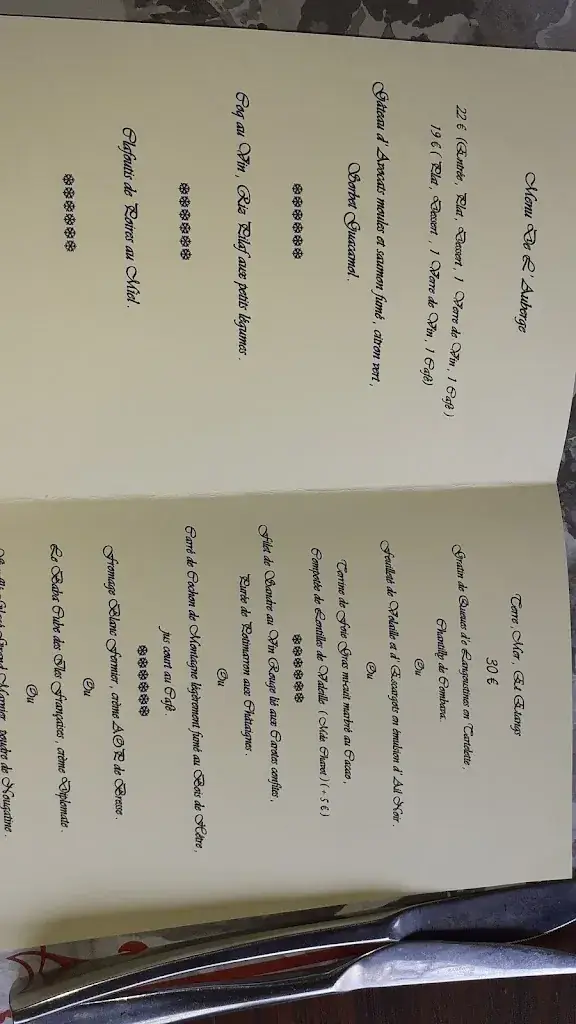 Menu De L' Auberge
22 € (Entrée, Plat, Dessert, 1 Verre de Vin, 1 Café )
19 € ( Plat, Dessert , 1 Verre de Vin, 1 Café)
Gâteau d' Avocats moules et saumon fumé , citron vert,
Sorbet Guacamol .
******
Coq au Vin , Riz Pilaf aux petits légumes .
******
Clafoutis de Poires au Miel .
******
Terre , Mer , Et Etangs
30 €
Gratin de Queues d'e Langoustines en Tartelette ,
Chantilly de Combava.
Ou
Feuilleté de Volaille et d' Escargots en émulsion d' Ail Noir .
Ou
Terrine de Foie Gras mi-cuit marbré au Cacao ,
Compotée de Lentilles de Valeille ( Mdo Chavot ) ( + 5 €)
******
Filet de Sandre au Vin Rouge lié aux Carottes confites ,
Purée de Potimarron aux Châtaignes .
Ou
Carré de Cochon de Montagne légèrement fumé au Bois de Hêtre ,
jus court au Café .
******
Fromage Blanc Fermier , crème A.O.P. de Bresse .
Ou
Le Baba Cube des Iles Françaises , crème Diplomate .
Ou
Grand Marnier, poudre de Nougatine .